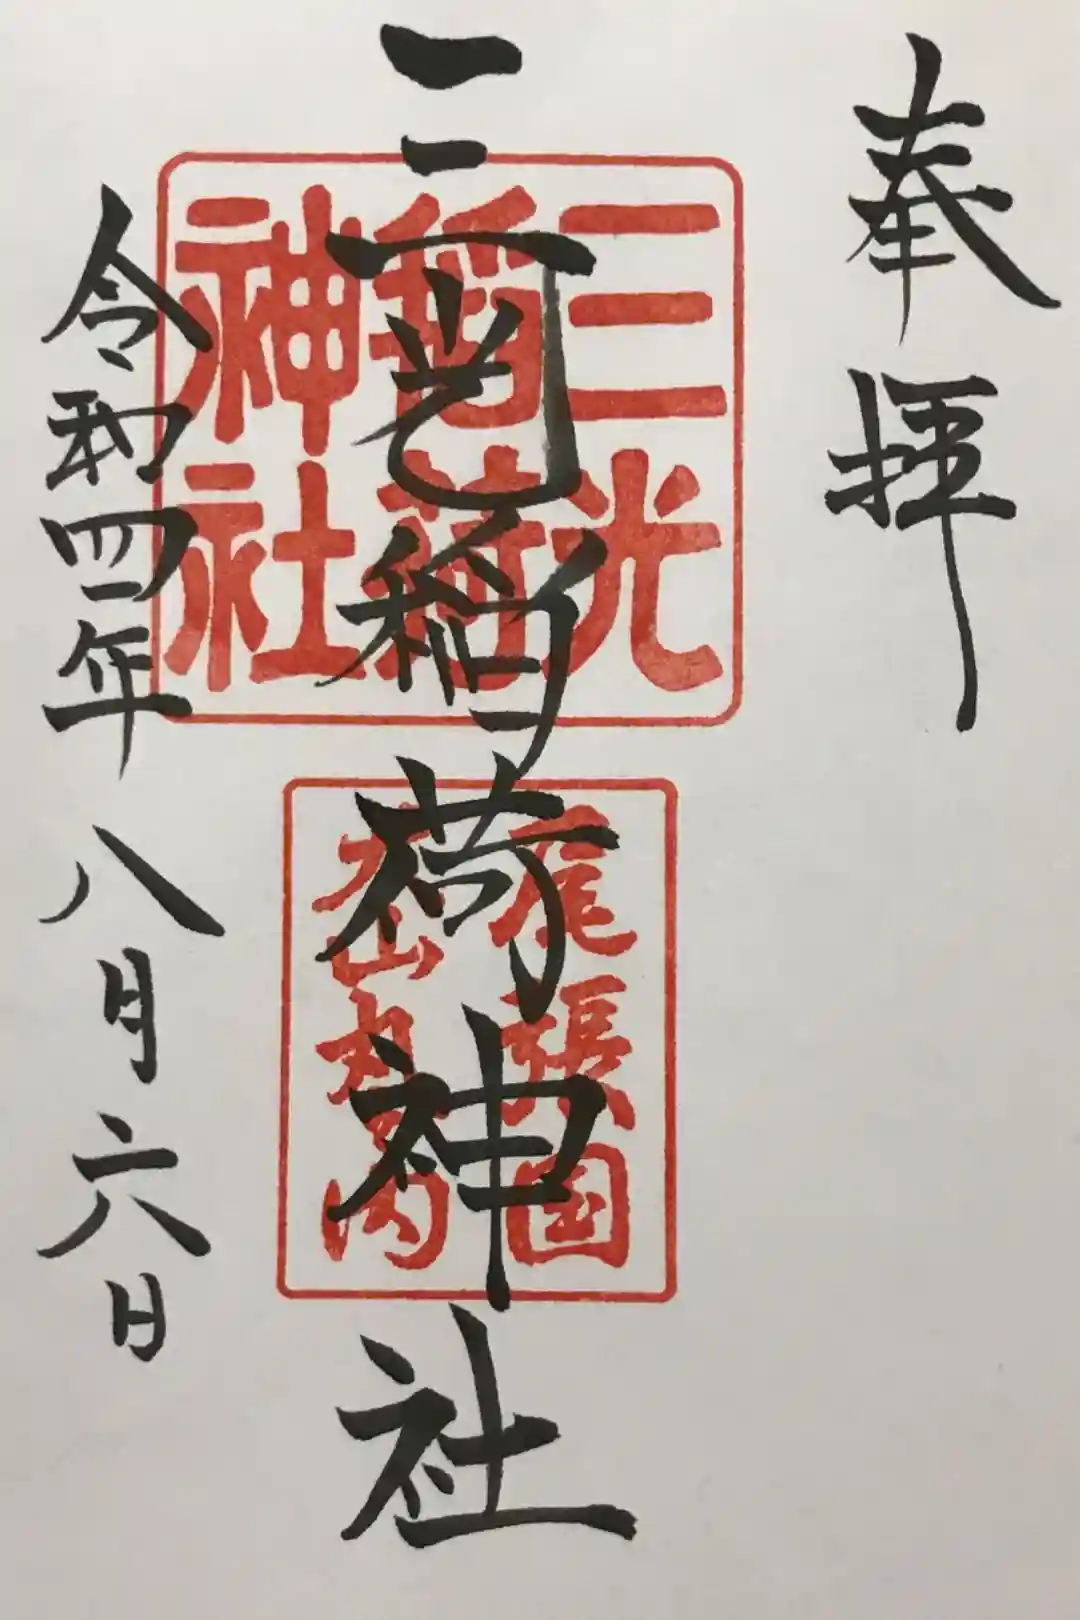 奉拝
三光稲荷神社
三光
稲荷
神社
尾張国
犬山丸之内
令和四年八月六日